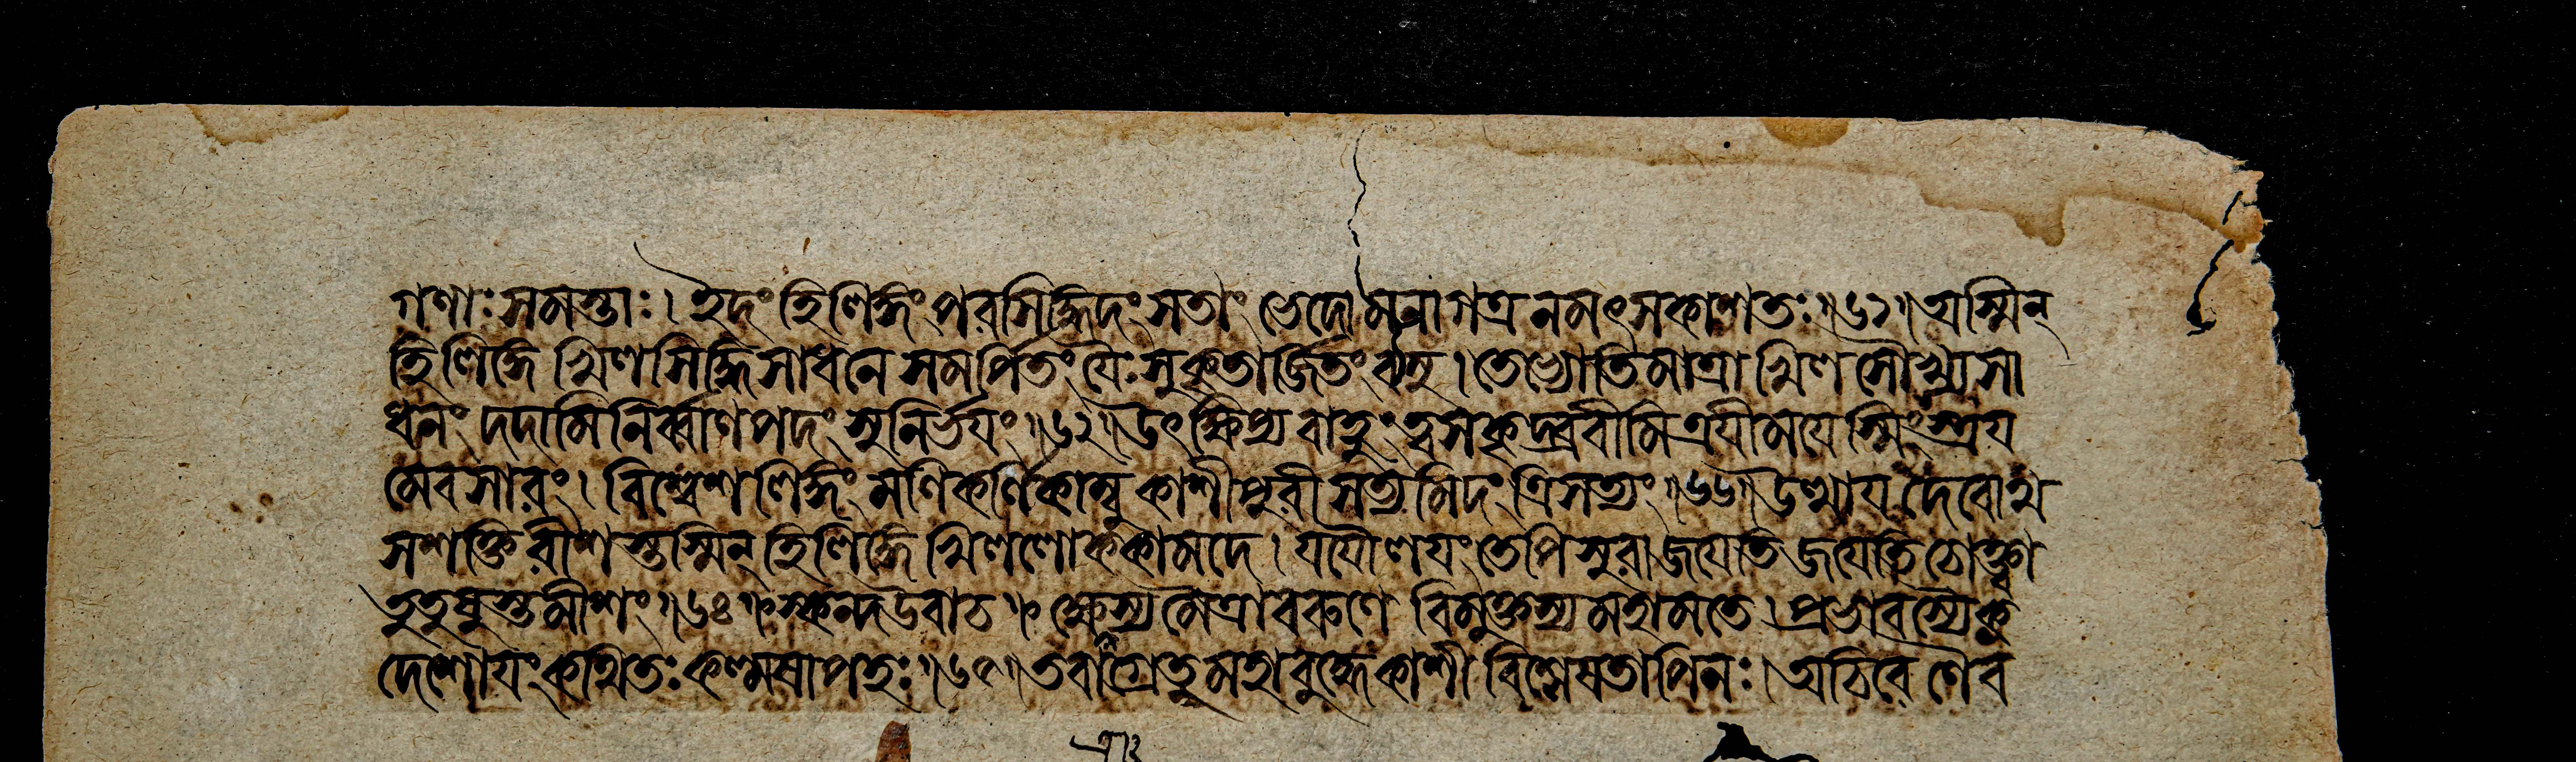 গণাঃ সমস্তাঃ। ইদং হি লিঙ্গং পরসিদ্ধিদং সতাং ভেদো মনাগত্র নমৎসকাশতঃ॥৬১॥ অস্মিন্
হি লিঙ্গে খিলসিদ্ধিসাধনে সমর্পিতং যৈঃ সুকৃতার্জিতং বসু। তেভ্যোতিমাত্রাখিলসৌখ্যসা
ধনং দদামি নির্ব্বাণপদং সুনির্ভয়ং॥৬২॥ উৎক্ষিপ্য বাহুং ত্বসকৃদ্ব্রবীমি ত্রয়ীময়েস্মিংস্ত্রয়
মেব সারং। বিশ্বেশলিঙ্গং মণিকর্ণিকাম্বু কাশীপুরী সত্যমিদং ত্রিসত্যং॥৬৩॥ উত্থায় দেবোথ
সশক্তিরীশস্তস্মিন্ হি লিঙ্গে খিললোককামদে। যযৌ লয়ং তেপি সুরা জয়েতি জয়েতি চোক্ত্বা
নুনুবুস্তমীশং॥৬৪॥ স্কন্দ উবাচ॥ ক্ষেত্রস্য মৈত্রাবরুণে বিমুক্তস্য মহামতে। প্রভাবস্যৈক
দেশোয়ং কথিতঃ কল্মষাপহঃ॥৬৫॥ তবাগ্রে তু মহাবুদ্ধে কাশীবিশ্লেষতাপিনঃ। অচিরেণৈব
ত্রাঃ